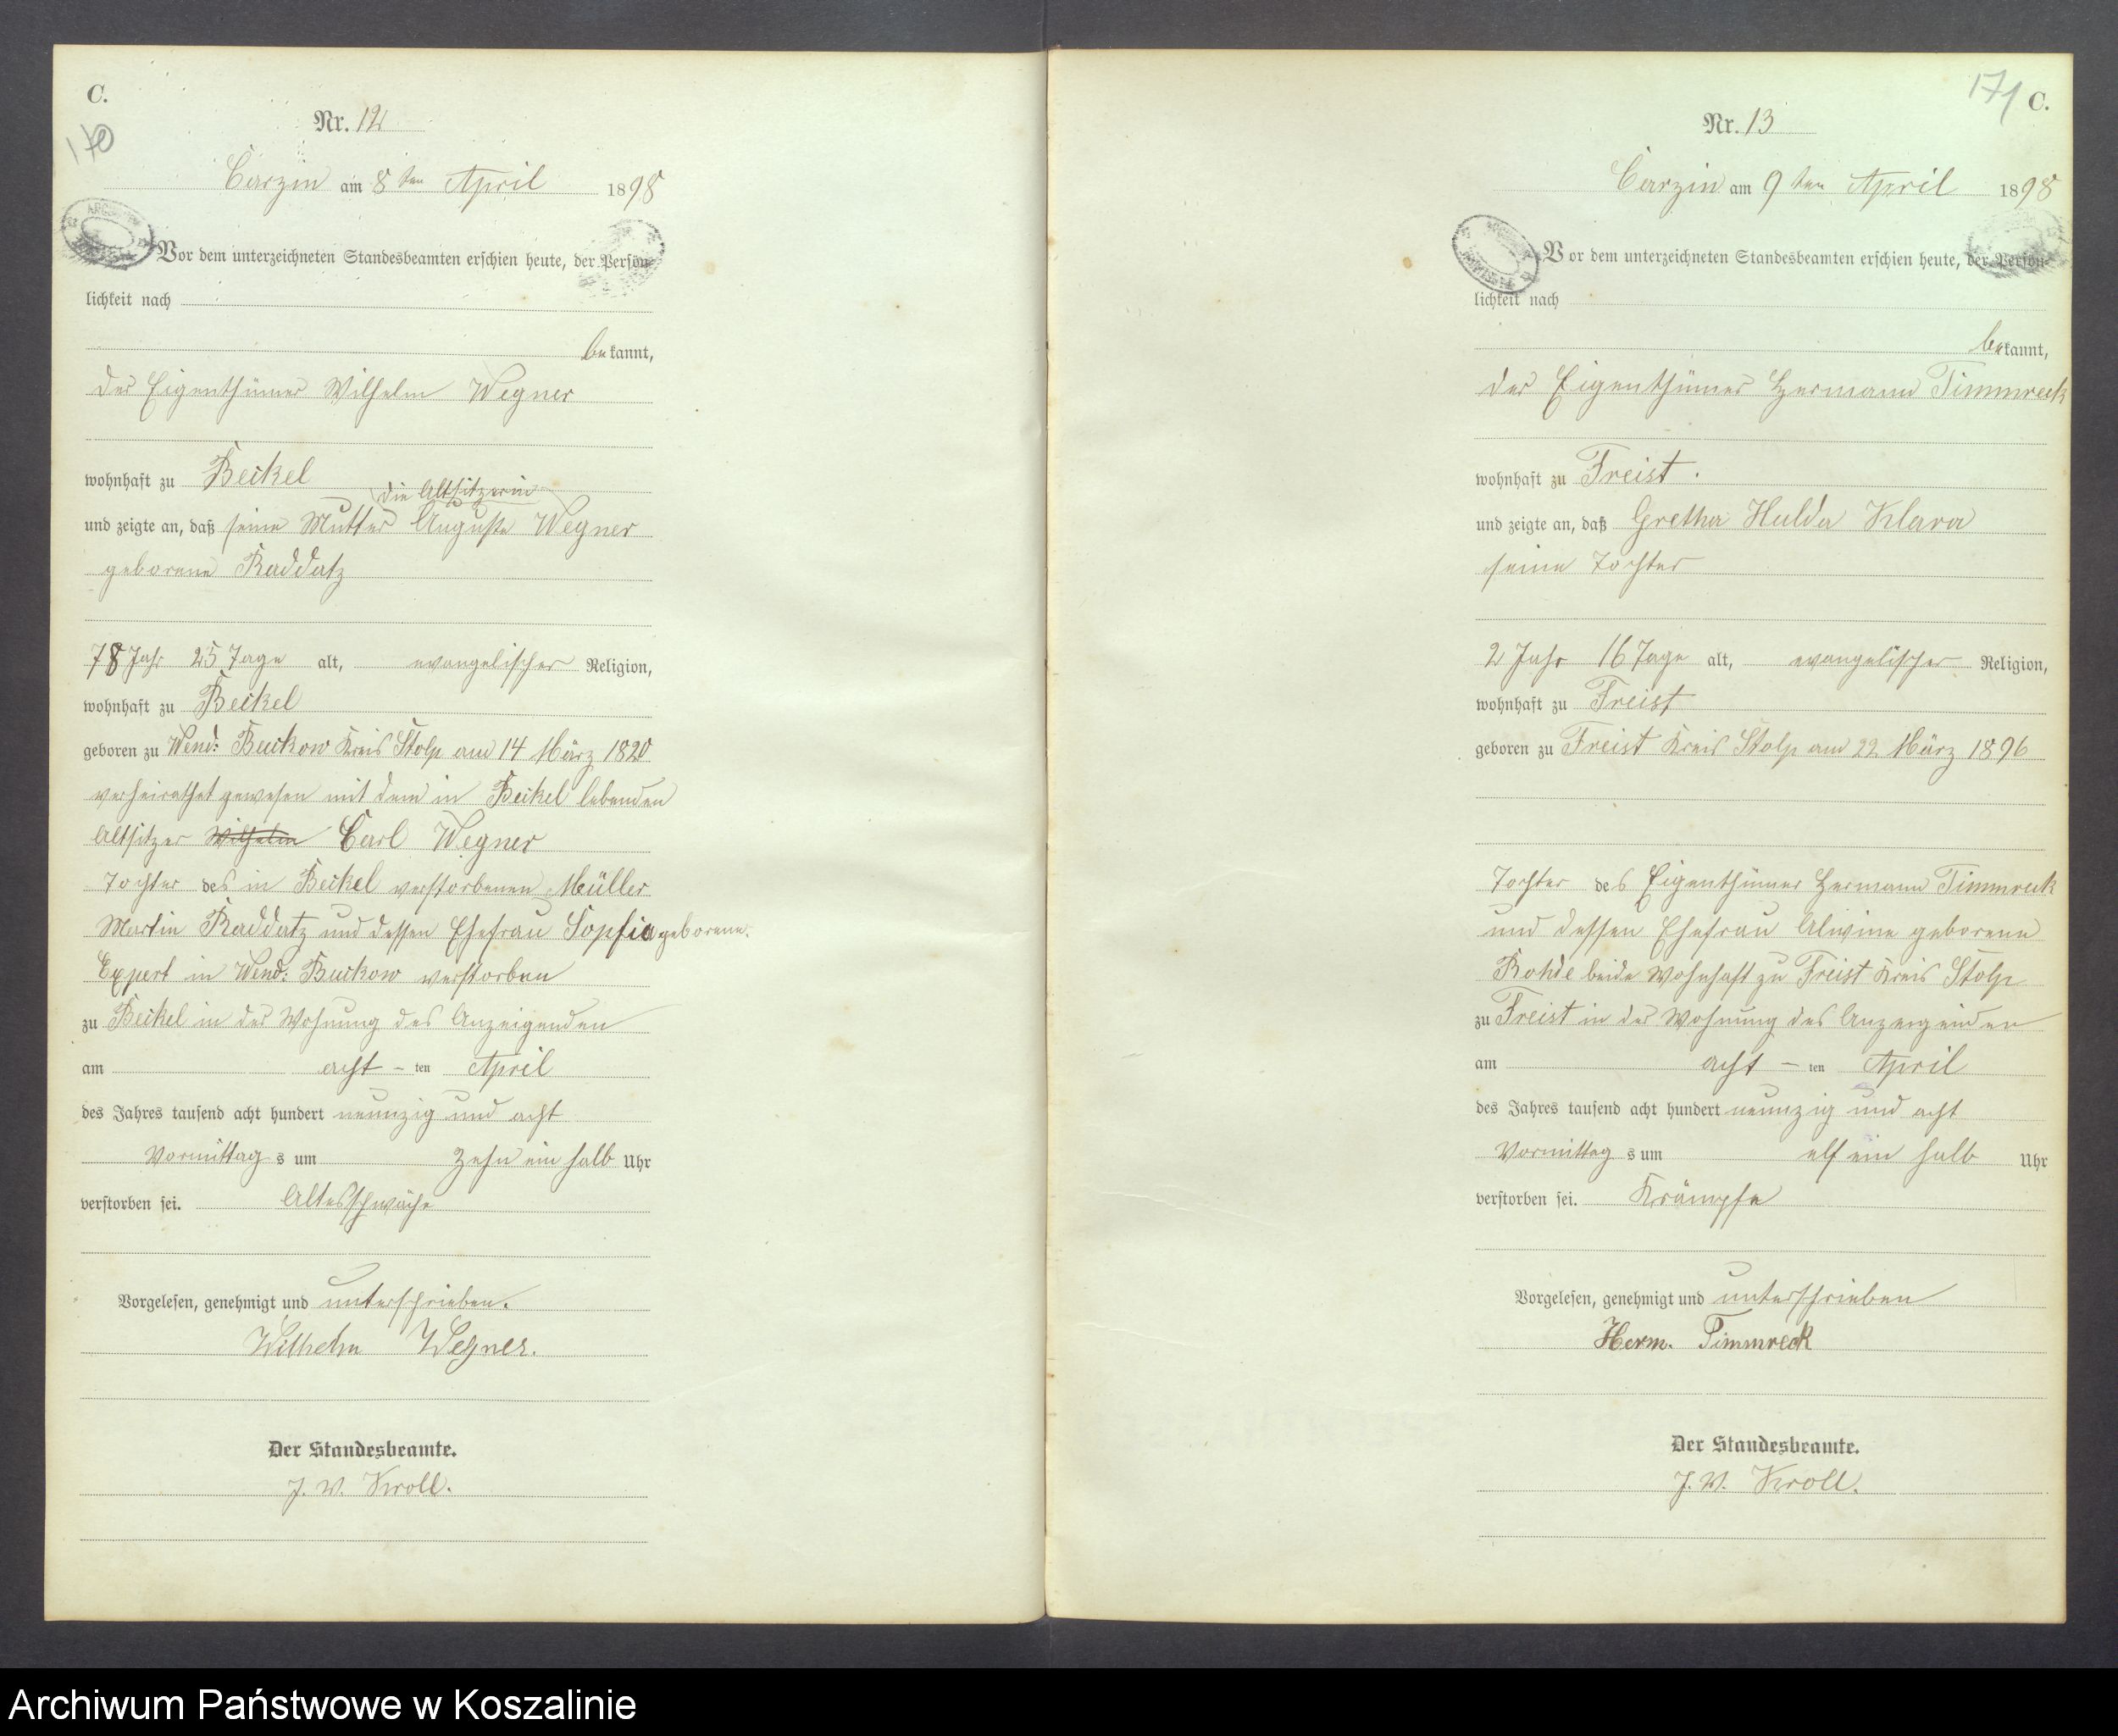 C.
170
Nr. 12
Carzin am 8ten April 1898
Vor dem unterzeichneten Standesbeamten erschien heute, der Persön-
lichkeit nach
bekannt,
der Eigenthümer Wilhelm Wegner
wohnhaft zu Beckel
die Altsitzerin
und zeigte an, daß seine Mutter Auguste Wegner
geborene Raddatz
78 Jahr 25 Tage alt, evangelischer Religion,
wohnhaft zu Beckel
geboren zu Wend: Buckow Kreis Stolp am 14 März 1820
verheirathet gewesen mit dem in Beckel lebenden
Altsitzer Wilhelm Carl Wegner
Tochter des in Beckel verstorbenen Müller
Martin Raddatz und dessen Ehefrau Sophia geborene.
Expert in Wend: Buckow verstorben
zu Beckel in der Wohnung des Anzeigenden
am acht – ten April
des Jahres tausend acht hundert neunzig und acht
Vormittag s um zehn ein halb Uhr
verstorben sei. Altersschwäche
Vorgelesen, genehmigt und unterschrieben.
Wilhelm Wegner.
Der Standesbeamte.
J. V. Kroll.
171 C.
Nr. 13
Carzin am 9ten April 1898
Vor dem unterzeichneten Standesbeamten erschien heute, der Persön-
lichkeit nach
bekannt,
der Eigenthümer Hermann Timmreck
wohnhaft zu Freist.
und zeigte an, daß Gretha Hulda Klara
seine Tochter
2 Jahr 16 Tage alt, evangelischer Religion,
wohnhaft zu Freist
geboren zu Freist Kreis Stolp am 22 März 1896
Tochter des Eigenthümer Hermann Timmreck
und dessen Ehefrau Alwine geborene
Rohde beide wohnhaft zu Freist Kreis Stolp
zu Freist in der Wohnung des Anzeigenden
am acht – ten April
des Jahres tausend acht hundert neunzig und acht
Vormittag s um elf ein halb Uhr
verstorben sei. Krämpfe
Vorgelesen, genehmigt und unterschrieben
Herm. Timmreck
Der Standesbeamte.
J. V. Kroll.
Archiwum Państwowe w Koszalinie